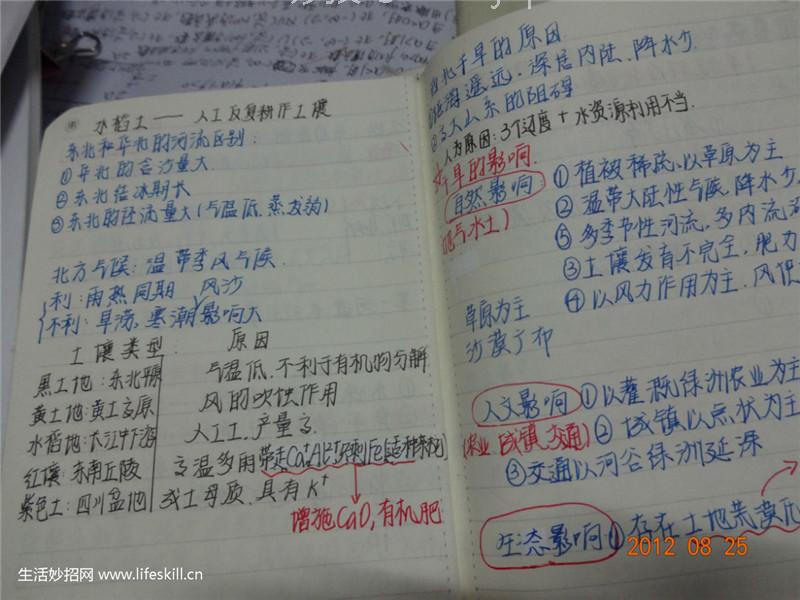 水稻土—— 人工反复耕作土壤
东北和华北的河流区别:
①华北的含沙量大
②东北结冰期长
③东北的径流量大(气温低.蒸发弱)
北方气候:温带季风气候.
利:雨热同期 风沙
不利:旱涝,寒潮影响大
土壤类型: 原因
黑土地:东北平原 气温低.不利于有机物分解
黄土地:黄土高原 风的吹蚀作用
水稻地:长江中下游 人工工,产量高.
红壤:东南丘陵 高温多雨带走Ca
紫色土:四川盆地 成土母质.具有K⁺
增施CaO,有机肥
北干旱的原因
距海遥远.深居内陆.降水少.
②高大山系的阻碍
人为原因:3个过度+水资源利用不当.
干旱的影响.
自然影响: ①植被稀疏.以草原为主
气水土) ②温带大陆性气候.降水少.
⑤多季节性河流,多内流
③土壤发育不完全,肥力
④以风力作用为主,风
草原为主
沙漠广布
人文影响 ①以灌溉绿洲农业为主
(农业 城镇 交通) ②城镇以点状为主
③交通以河谷绿洲延深
生态影响 ①存在土地荒漠
2012 08 25
生活妙招网 www.lifeskill.cn